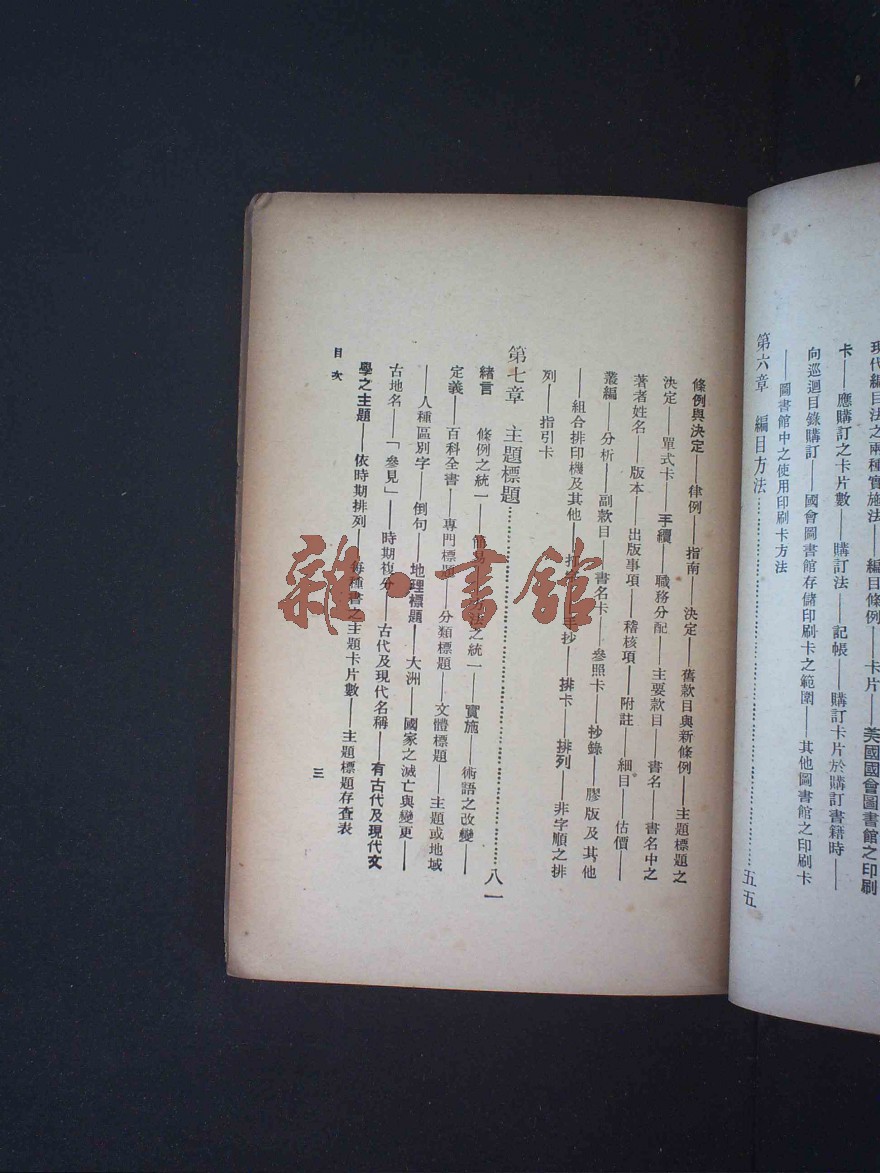 現代編目法之兩種實施法——編目條例——卡片——美國國會圖書館之印刷
卡——應購訂之卡片數——購訂法——記帳——購訂卡片於購訂書籍時——
向巡迴目錄購訂——國會圖書館存儲印刷卡之範圍——其他圖書館之印刷卡
——圖書館中之使用印刷卡方法
第六章 編目方法……五五
條例與決定——律例——指南——決定——舊款目與新條例——主題標題之
決定——單式卡——手續——職務分配——主要款目——書名——書名中之
著者姓名——版本——出版事項——稽核項——附註——細目——估價——
叢編——分析——副款目——書名卡——參照卡——抄錄——膠版及其他
——組合排印機及其他——打字——手抄——排卡——排列——非字順之排
列——指引卡
第七章 主題標題……八一
緒言 條例之統一——簡易——方法之統一——實施——術語之改變——
定義——百科全書——專門標題——分類標題——文體標題——主題或地域
——人種區別字——倒句——地理標題——大洲——國家之滅亡與變更——
古地名——「參見」——時期複分——古代及現代名稱——有古代及現代文
學之主題——依時期排列——每種書之主題卡片數——主題標題存查表
目次
三
雜·書館